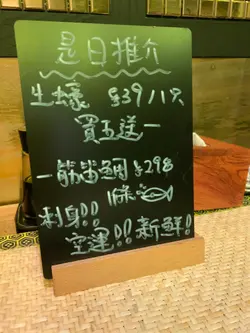 是日推介
生蠔 $39/1只
買五送一
一籂笛鯛 $298
1條
刺身!!
空運!! 新鮮!